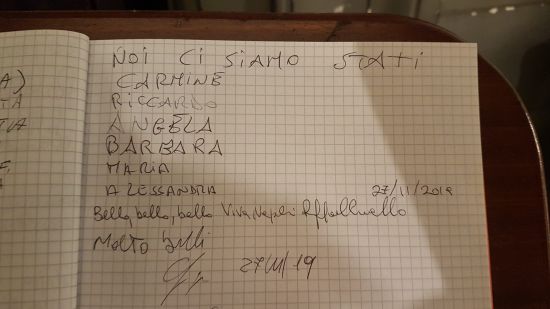 A)
NOI CI SIAMO STATI
CARMINE
RICCARDO
ANGELA
BARBARA
MARIA
ALESSANDRA
27/11/2019
Bello, bello, bello Viva Napoli Raffaelluello
MOLTO Belli
27/11/19